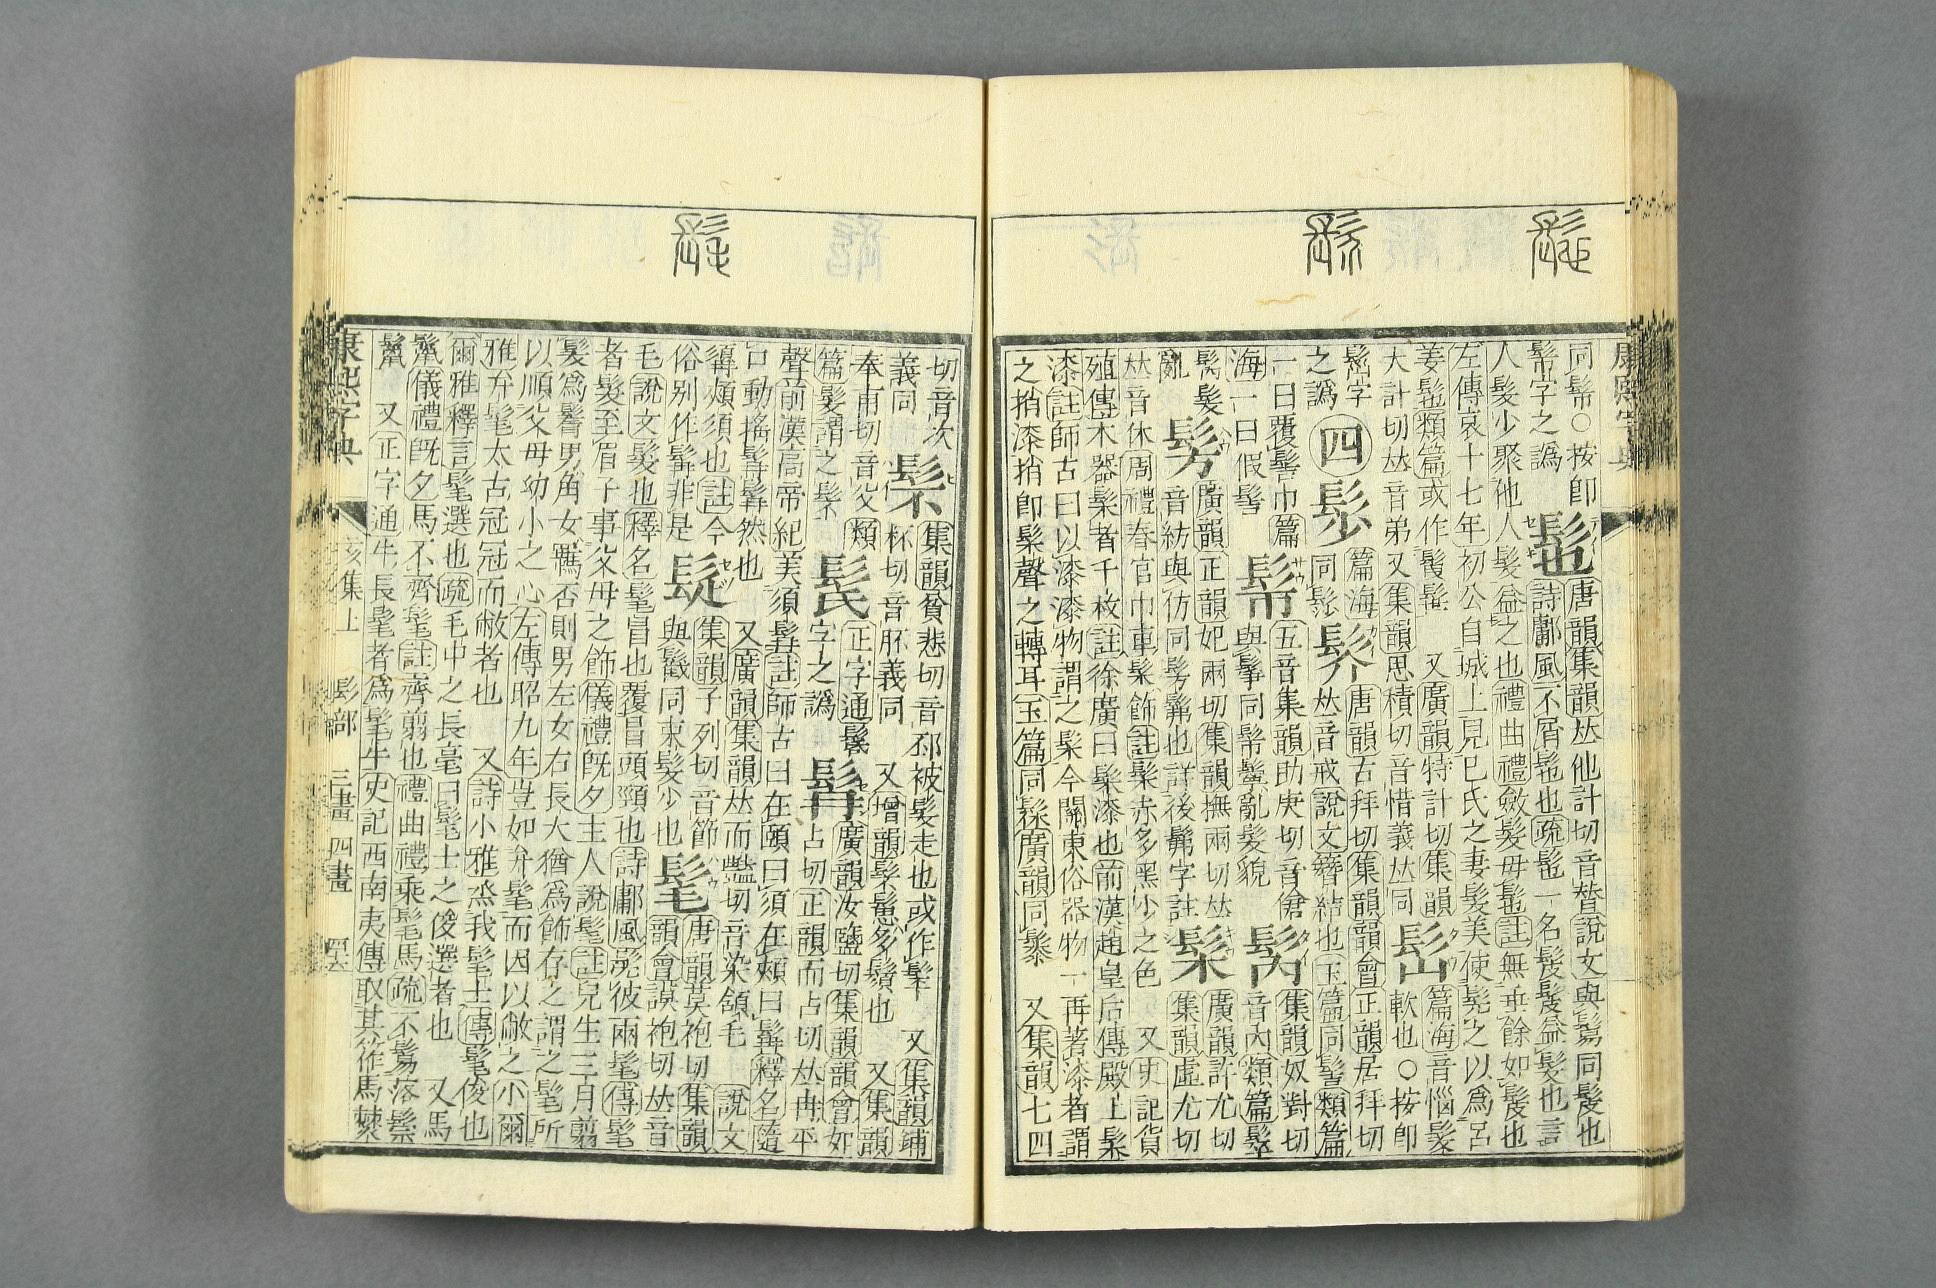 康熙字典
同髴○按卽
髴字之譌
髢
唐韻集韻𠀤他計切音替說文與鬄同髲也
詩鄘風不屑髢也疏髢一名髲髲益髮也言
人髮少聚他人髮益之也禮曲禮斂髮毋髢註無垂餘如髲也
左傳哀十七年初公自城上見己氏之妻髮美使髡之以爲呂
姜髢類篇或作髲髢 又廣韻特計切集韻
大計切𠀤音弟又集韻思積切音惜義𠀤同
篇海音惱髮
軟也○按卽
髱字
之譌
四
髿
篇海
同髟
髺
唐韻古拜切集韻韻會正韻居拜切
𠀤音戒說文簪結也玉篇同髻類篇
一曰覆髻巾篇
海一曰假髻
五音集韻助庚切音傖
與鬇同髴鬡亂髮貌
集韻奴對切
音內類篇髮
髣
廣韻正韻妃兩切集韻撫兩切𠀤
音紡與仿同髣髴也詳後髴字註
髤
廣韻許尤切
集韻虛尤切
𠀤音休周禮春官巾車髤飾註髤赤多黑少之色 又史記貨
殖傳木器髤者千枚註徐廣曰髤漆也前漢趙皇后傳殿上髤
漆註師古曰以漆漆物謂之髤今關東俗器物一再著漆者謂
之捎漆捎卽髤聲之轉耳玉篇同髹廣韻同䰍 又集韻七四
切音次
義同
髬
集韻貧悲切音邳被髮走也或作髽 又集韻鋪
杯切音肧義同 又增韻髤髶多鬚也 又集韻
奉甫切音父類
篇髮謂之髤
髺
正字通鬏
字之譌
髯
廣韻汝鹽切集韻韻會如
占切正韻而占切𠀤冉平
聲前漢高帝紀美須髯註師古曰在頤曰須在頰曰髯釋名隨
口動搖髯髯然也 又廣韻集韻𠀤而豔切音染頷毛 說文
頰須也註今
俗別作髯非是
集韻子列切音節
與䰂同束髮少也
髦
唐韻莫袍切集韻
韻會謨袍切𠀤音
毛說文髮也釋名髦冒也覆冒頭頸也詩鄘風髧彼兩髦傳髦
者髮至眉子事父母之飾儀禮旣夕主人說髦註兒生三月翦
髮爲鬌男角女羈否則男左女右長大猶爲飾存之謂之髦所
以順父母幼小之心左傳昭九年豈如弁髦而因以敝之小爾
雅弁髦太古冠冠而敝者也 又詩小雅烝我髦士傳髦俊也
爾雅釋言髦選也疏毛中之長毫曰髦士之俊選者也 又馬
鬣儀禮旣夕馬不齊髦註齊翦也禮曲禮乘髦馬疏不鬄落鬃
鬣 又正字通牛長髦者爲髦牛史記西南夷傳取其筰馬僰
康熙字典 亥集上 髟部 三畫 四畫